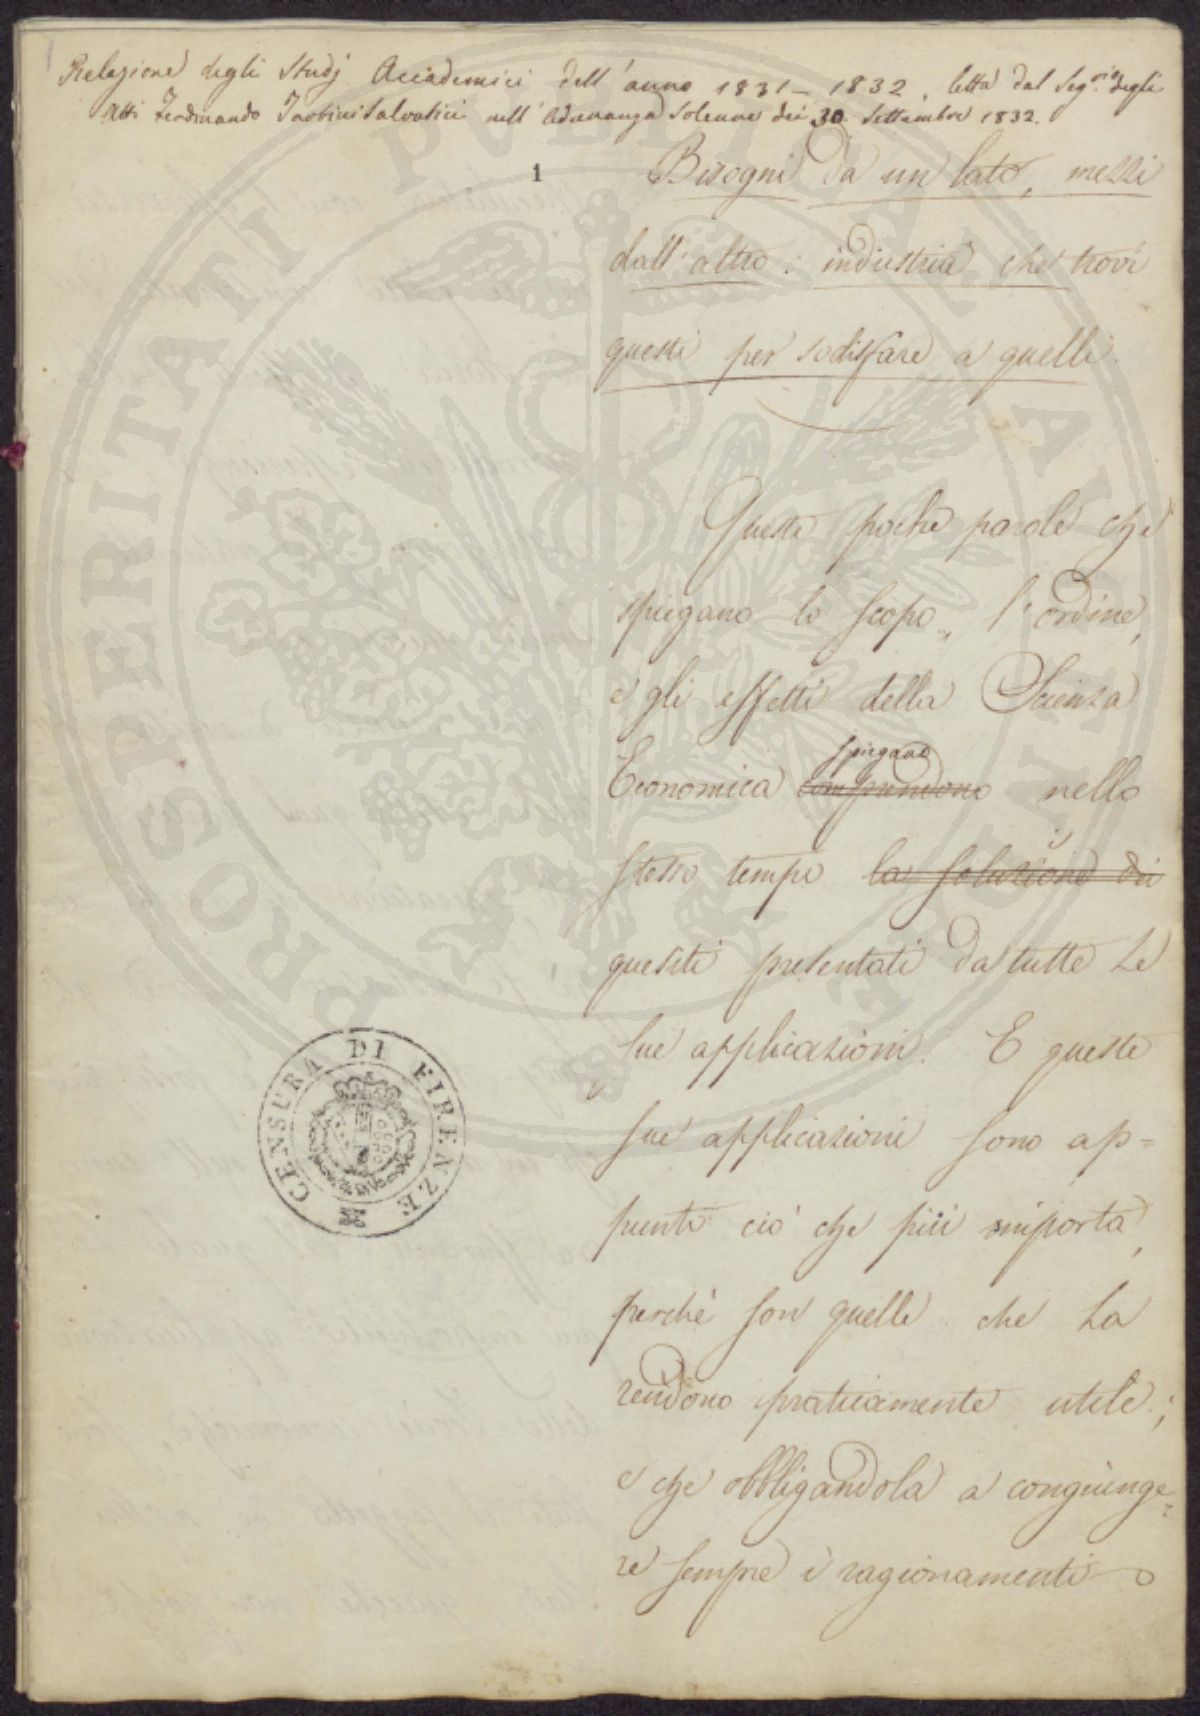 Relazione degli Studj Accademici dell'anno 1831 – 1832, letta dal Seg.rio degli
Atti Ferdinando Tartini Salvatici nell'Adunanza Solenne dei 30 Settembre 1832.
1
Bisogni da un lato, mezzi
dall'altro: industria che trovi
questi per sodisfare a quelli.
Queste poche parole che
spiegano lo scopo, l'ordine,
e gli effetti della Scienza
spiegano
Economica comprendono nello
stesso tempo la soluzione dei
quesiti presentati da tutte le
sue applicazioni. E queste
sue applicazioni sono ap=
punto ciò che più importa,
perché son quelle che la
rendono praticamente utile;
e che obbligandola a congiunge=
re sempre i ragionamenti
CENSURA DI FIRENZE
PROSPERITATI PUBLICAE AUGENDAE